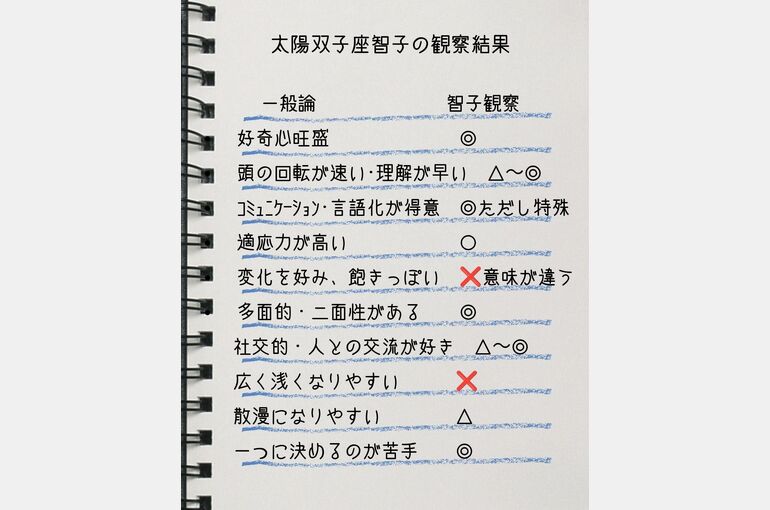 太陽双子座智子の観察結果
一般論 智子観察
好奇心旺盛 ◎
頭の回転が速い・理解が早い △〜◎
ｺﾐｭﾆｹｰｼｮﾝ・言語化が得意 ◎ただし特殊
適応力が高い ○
変化を好み、飽きっぽい ❌意味が違う
多面的・二面性がある ◎
社交的・人との交流が好き △〜◎
広く浅くなりやすい ❌
散漫になりやすい △
一つに決めるのが苦手 ◎